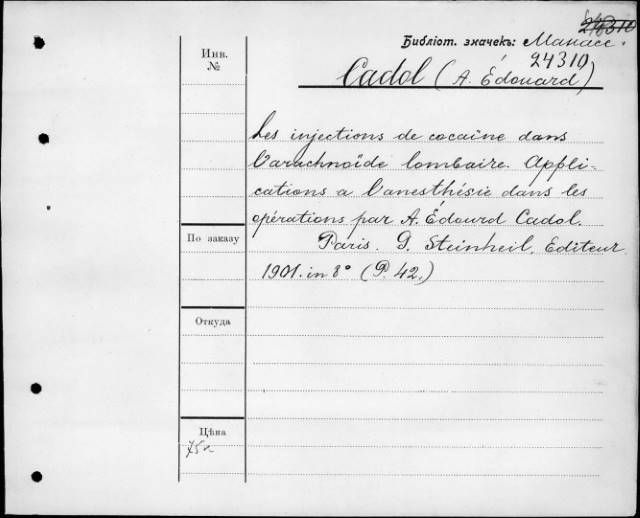 24310
Библіот. значекъ: Манасс.
24310
Инв.
№
Cadol (A. Édouard)
Les injections de cocaïne dans
l'arachnoïde lombaire. Appli-
cations a l'anesthésie dans les
opérations par A. Édourd Cadol.
По заказу
Paris. G. Steinheil, Editeur
1901. in 8° (P. 42.)
Откуда
Цѣна